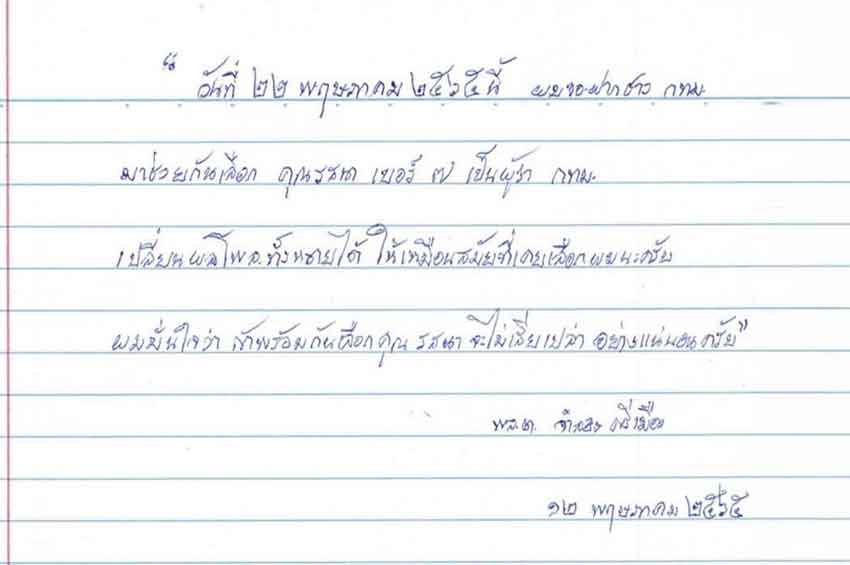 “ วันที่ ๒๒ พฤษภาคม ๒๕๖๕นี้ ผมขอฝากชาว กทม.
มาช่วยกันเลือก คุณรสนา เบอร์ ๗ เป็นผู้ว่า กทม.
เปลี่ยนผลโพล.ทั้งหลายได้ ให้เหมือนสมัยที่เคยเลือกผมนะครับ
ผมมั่นใจว่า ถ้าพร้อมกันเลือกคุณ รสนา จะไม่เสียเปล่า อย่างแน่นอนครับ”
พล.ต. จำลอง ศรีเมือง
๑๒ พฤษภาคม ๒๕๖๕